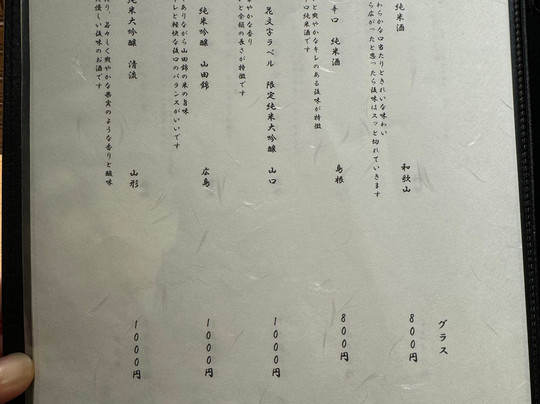 グラス
純米酒 和歌山 800円
わらかな口当たりときれいな味わい
ら広がったと思ったら後味はスッと切れていきます
辛口 純米酒 島根 800円
と爽やかなキレのある後味が特徴
口純米酒です
花文字ラベル 限定純米大吟醸 山口 1000円
やかな香り
と余韻の長さが特徴です
純米吟醸 山田錦 広島 1000円
ありながら山田錦の米の旨味
レと軽快な後口のバランスがいいです
純米大吟醸 清流 山形 1000円
り、若々しく爽やかな果実のような香りと酸味
優しい後味のお酒です